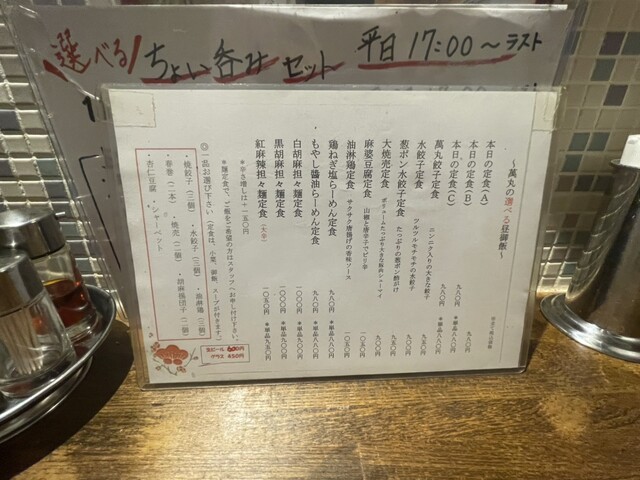 選べる ちょい呑み セット 平日 17:00〜ラスト
〜萬丸の選べる昼御飯〜
本日の定食(A) 九八〇円
本日の定食(B) 九八〇円 *単品八八〇円
本日の定食(C)
萬丸餃子定食 ニンニク入りの大きな餃子 九八〇円 *単品八八〇円
水餃子定食 ツルツルモチモチの水餃子
葱ポン水餃子定食 たっぷりの葱ポン酢がけ
大焼売定食 ボリュームたっぷり大きな
麻婆豆腐定食 山椒と唐辛子でピリ辛
油淋鶏定食 サクサク唐揚げの香味ソース
鶏ねぎ塩らーめん定食 九八〇円 *単品八八〇円
もやし醬油らーめん定食 九八〇円 *単品八八〇円
白胡麻担々麺定食 一〇〇〇円 *単品九〇〇円
黒胡麻担々麺定食 一〇〇〇円 *単品九〇〇円
紅麻辣担々麺定食(大辛) 一〇五〇円 *単品九五〇円
*辛さ増しは+一五〇円
*麺定食で、ご飯をご希望の方はスタッフへお申し付け下さい。
◎一品お選び下さい(定食は、小菜、御飯、スープが付きます。)
・焼餃子(三個) ・水餃子(三個) ・油淋鶏(三個)
・春巻(二本) ・焼売(二個) ・胡麻揚団子(二個)
・杏仁豆腐 ・シャーベット
生ビール 600円
グラス 450円